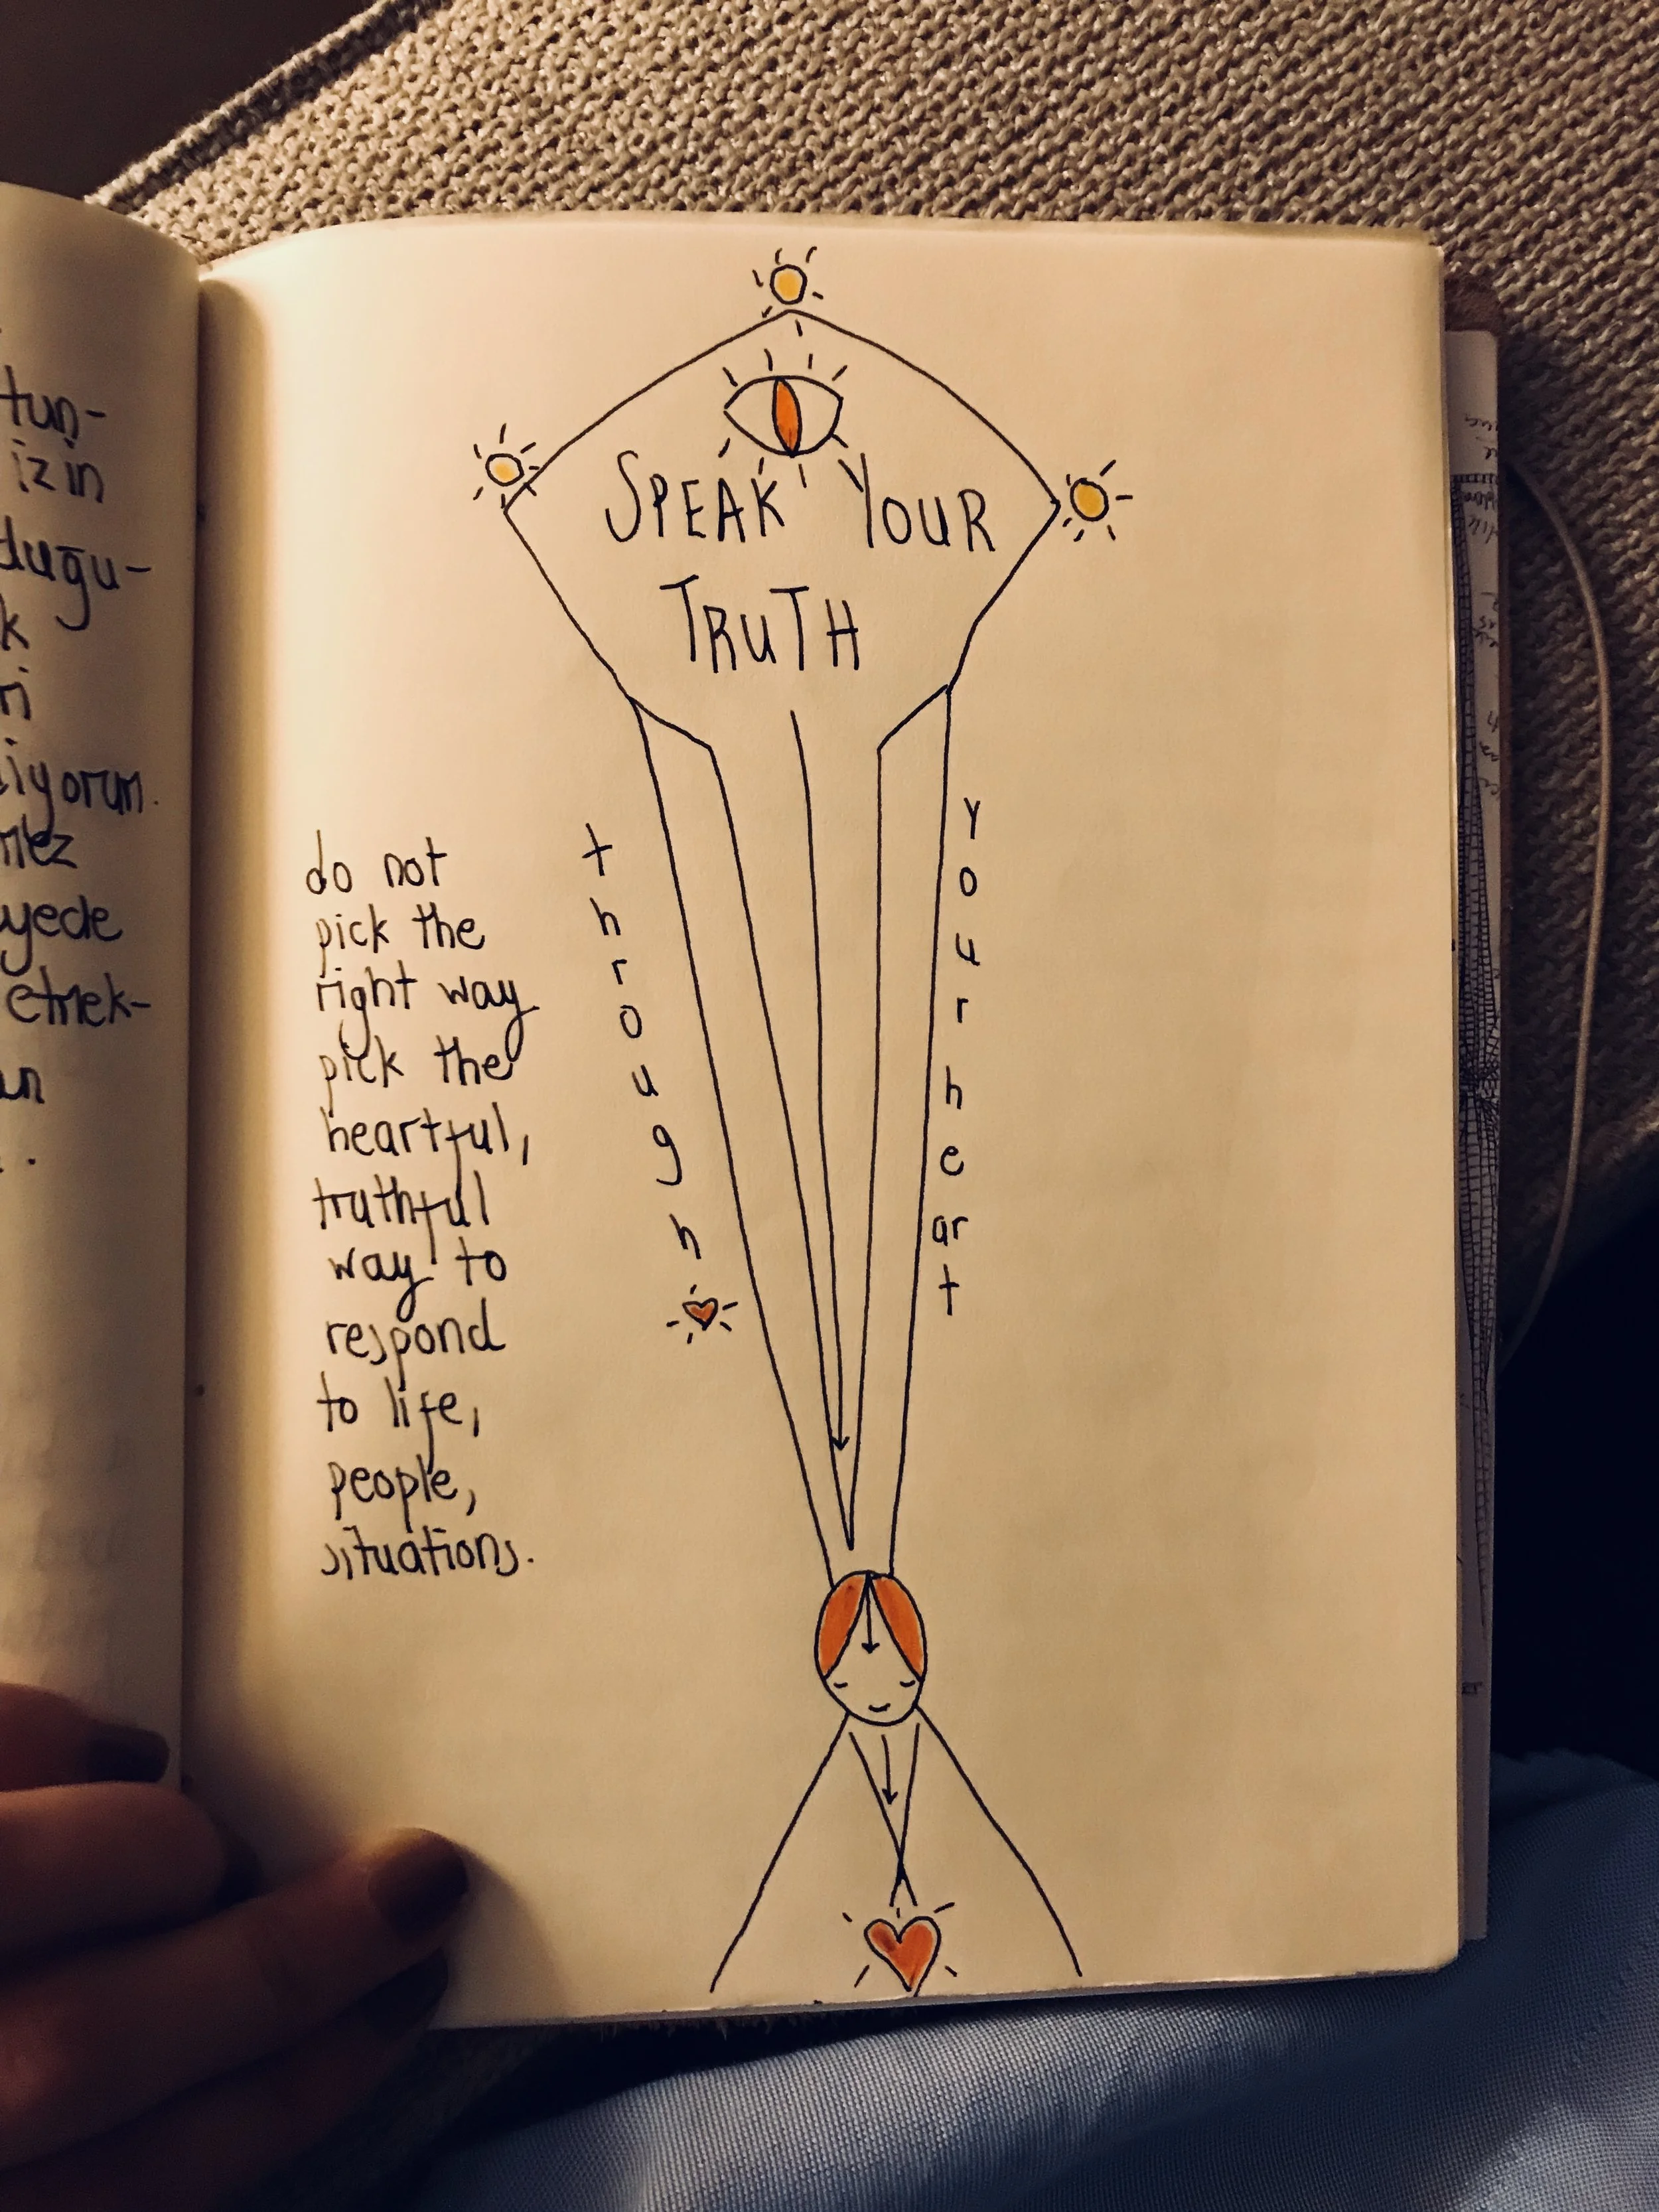 tun-
izin
duğu-
k
ri
iyorum.
mez
yede
etmek-
an
SPEAK YOUR
TRUTH
through
your heart
do not
pick the
right way
pick the
heartful,
truthful
way to
respond
to life,
people,
situations.